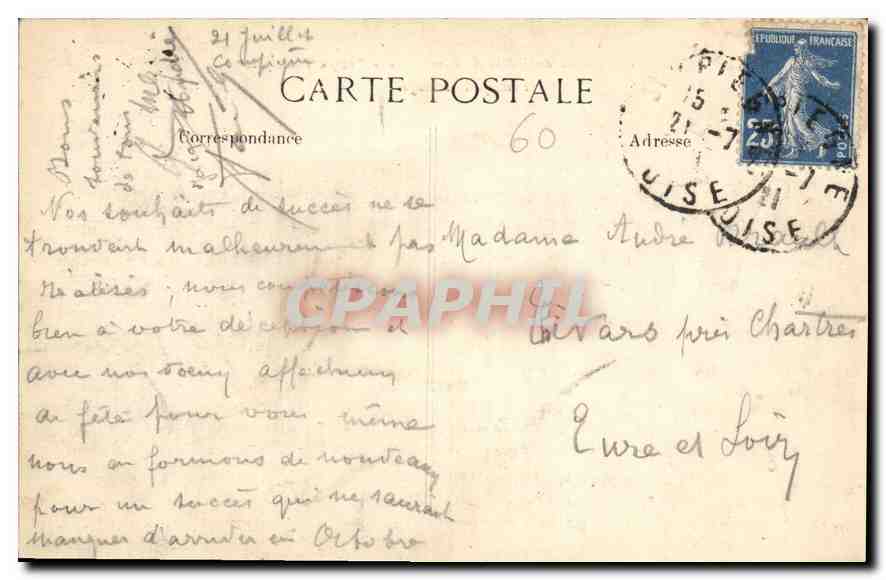 21 Juillet
Compiègne
CARTE POSTALE
Correspondance
60
Adresse
REPUBLIQUE FRANÇAISE
25
POSTES
OISE
21 -7
21
OISE
Bons
souvenirs
de tous
Nos souhaits de succès ne se
trouvent malheureusement pas
réalisés ; nous compatissons
bien à votre déception et
avec nos voeux affectueux
de fête pour vous même
nous en formons de nouveaux
pour un succès qui ne saurait
manquer d'arriver en Octobre
Madame André
Vars près Chartres
Eure et Loir
CPAPHIL